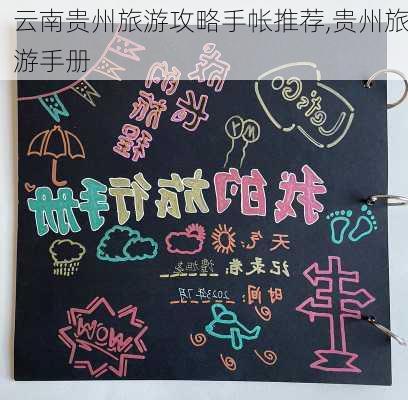 云南贵州旅游攻略手帐推荐,贵州旅
游手册
Let's Go
我的旅行手册
天气:
记录者:
时间: 2023年7月
WOW